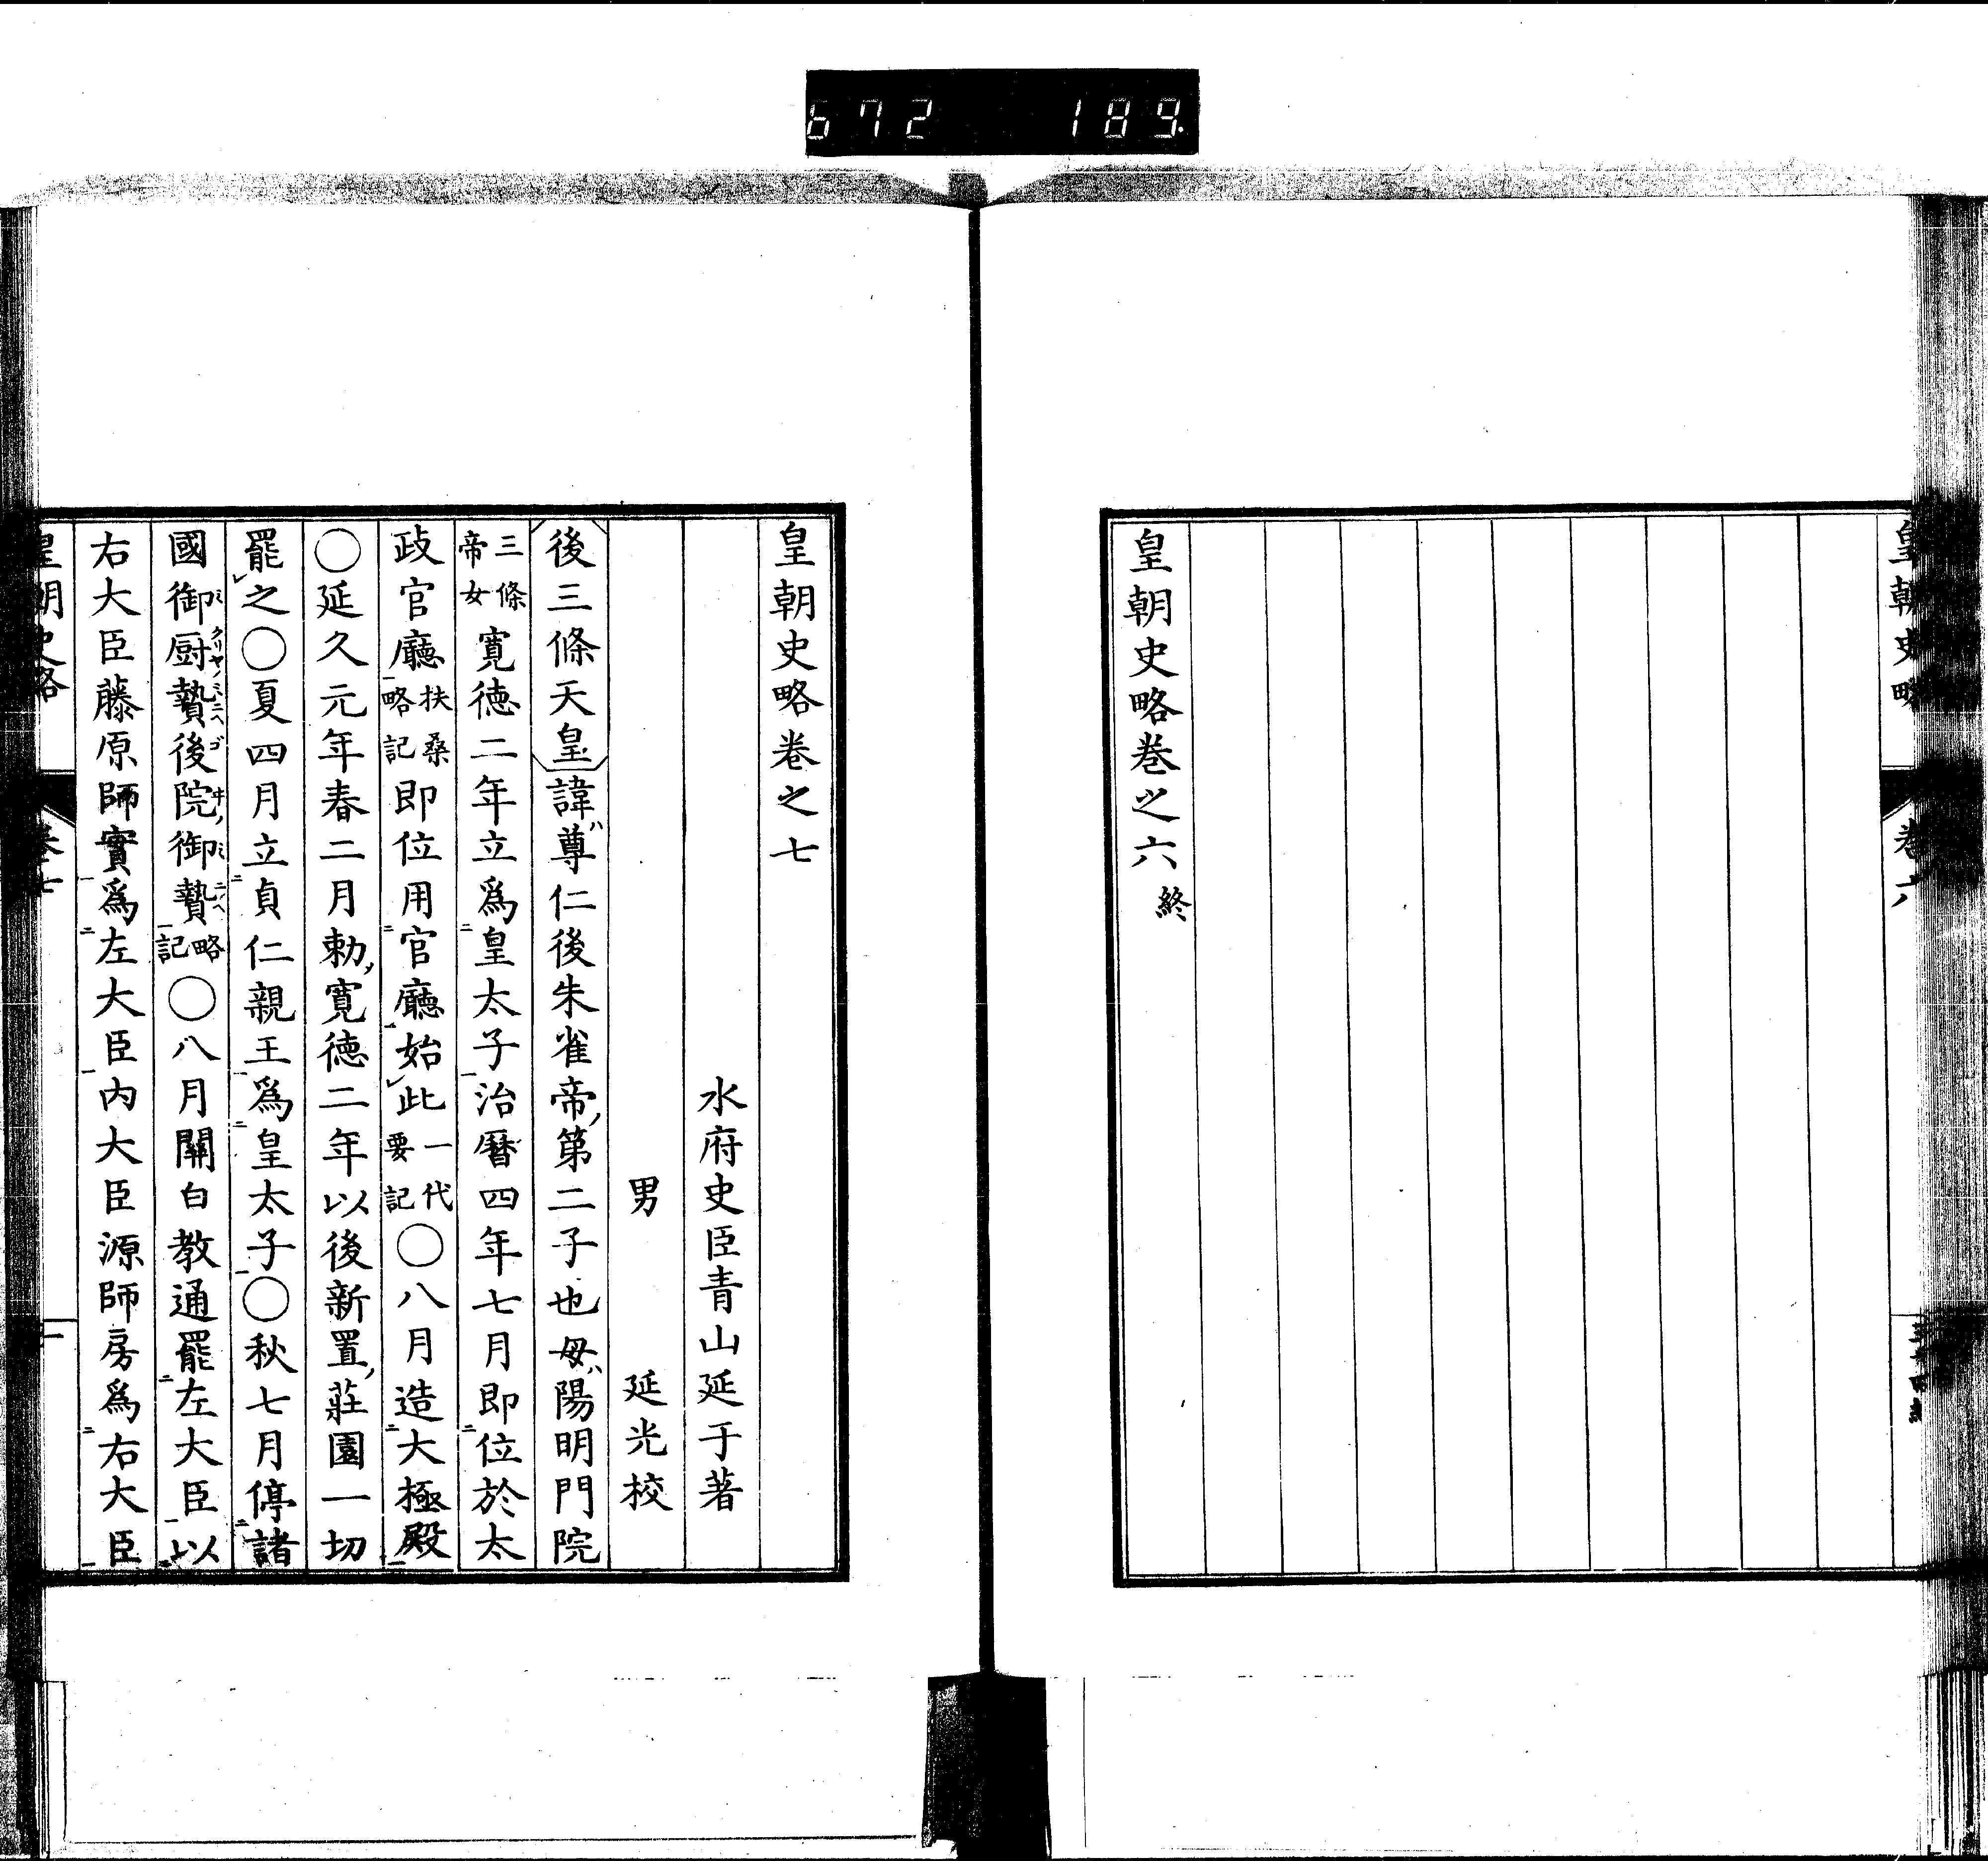 672 189
皇朝史略
皇朝史略巻之六 終
皇朝史略巻之七
水府史臣青山延于著
男 延光校
後三條天皇諱ハ尊仁後朱雀帝ノ第二子也母ハ陽明門院
三條帝女寛徳二年立爲皇太子治暦四年七月即位於太
政官廳扶桑略記即位用官廳始此一代要記〇八月造大極殿
〇延久元年春二月勅ノ寛徳二年以後新置ノ莊園一切
罷之〇夏四月立貞仁親王爲皇太子〇秋七月停諸
國御厨贄後院御贄略記〇八月關白教通罷左大臣以
右大臣藤原師實爲左大臣内大臣源師房爲右大臣
皇朝史略 巻七 一